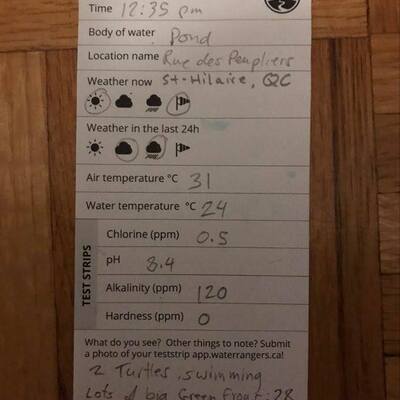 Time 12:35 pm
Body of water Pond
Location name Rue des Peupliers
Weather now St-Hilaire, QC
Weather in the last 24h
Air temperature °C 31
Water temperature °C 24
TEST STRIPS
Chlorine (ppm) 0.5
pH 8.4
Alkalinity (ppm) 120
Hardness (ppm) 0
What do you see? Other things to note? Submit
a photo of your teststrip app.waterrangers.ca!
2 Turtles swimming
Lots of big Green Frogs: 28